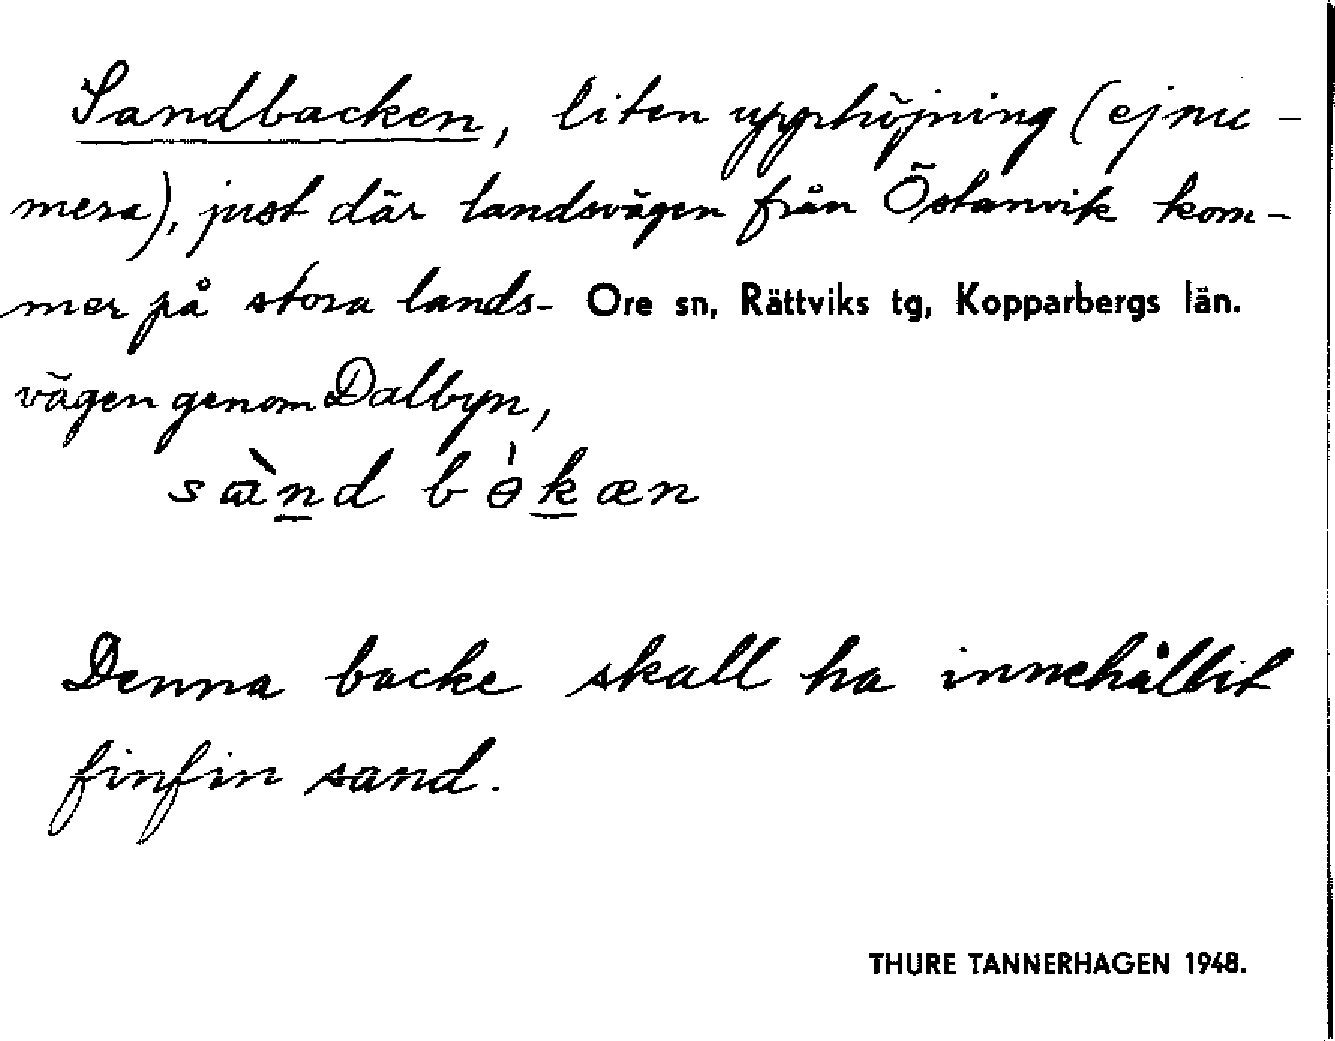 Sandbacken, liten upphöjning (ej nu-
mera), just där landsvägen från Östanvik kom-
mer på stora lands- Ore sn, Rättviks tg, Kopparbergs län.
vägen genom Dalbyn,
sànd bɵ̀kæn
Denna backe skall ha innehållit
finfin sand.
THURE TANNERHAGEN 1948.